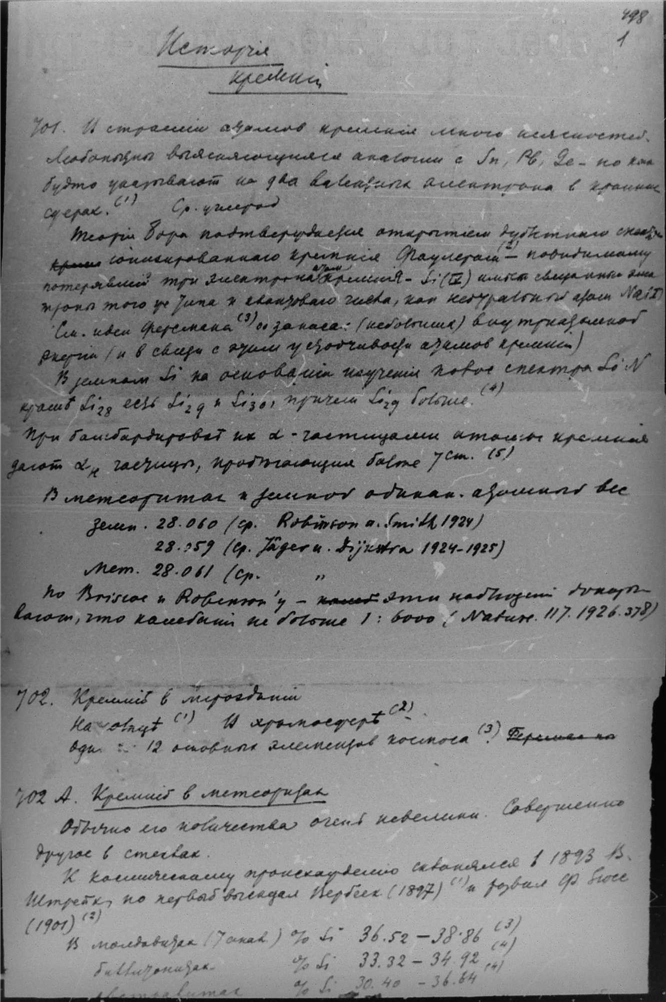 498
1
Исторія
кремнія
701. В строеніи атомов кремнія много неясностей.
аналогии с Sn, Pb, Ge - но как
будто указывают на два валентных электрона в
сферах. (1) Ср. углерод
Теорія Бора подтверждается открытіем
іонизированного кремнія Фаулером (2) - повидимому
потерявшій три электрона атом кремнія - Si (IV) имеет
того же типа и квантового числа, как нейтральный атом Na(I)
См. идеи Ферсмана (3) о запасе: (небольшом) внутриатомной
энергіи (и в связи с этим устойчивости атомов кремнія)
В земном Si на основаніи изученія полос спектра SiN
кроме Si28 есть Si29 и Si30, причем Si29 больше. (4)
При бомбардировке их α-частицами атомы кремнія
дают частицы, пробегающія более 7 cm. (5)
В метеоритах и земной одинак. атомный вес
Земн. 28.060 (ср. Robinson a. Smith 1924)
28.059 (ср. Jäger u. Dijkstra 1924-1925)
Мет. 28.061 (ср. "
По Briscoe и Robinson'у - эти наблюденія доказы-
вают, что колебанія не больше 1:6000 (Nature. 117. 1926. 378)
702. Кремній в мірозданіи
На солнце (1) В хромосфере (2)
Один из 12 основных элементов космоса (3)
702 А. Кремній в метеоритах
Обычно его количества очень невелики. Совершенно
другое в стеклах.
К космическому происхожденію склонялся в 1893 В.
но первый высказал Вербеек (1897) (1) и развил Ф. Зюсс
(1901) (2)
В молдавитах (7 анал.) % Si 36.52 - 38.86 (3)
биллитонитах % Si 33.32 - 34.92 (4)
австралитах % Si 30.40 - 36.64 (4)